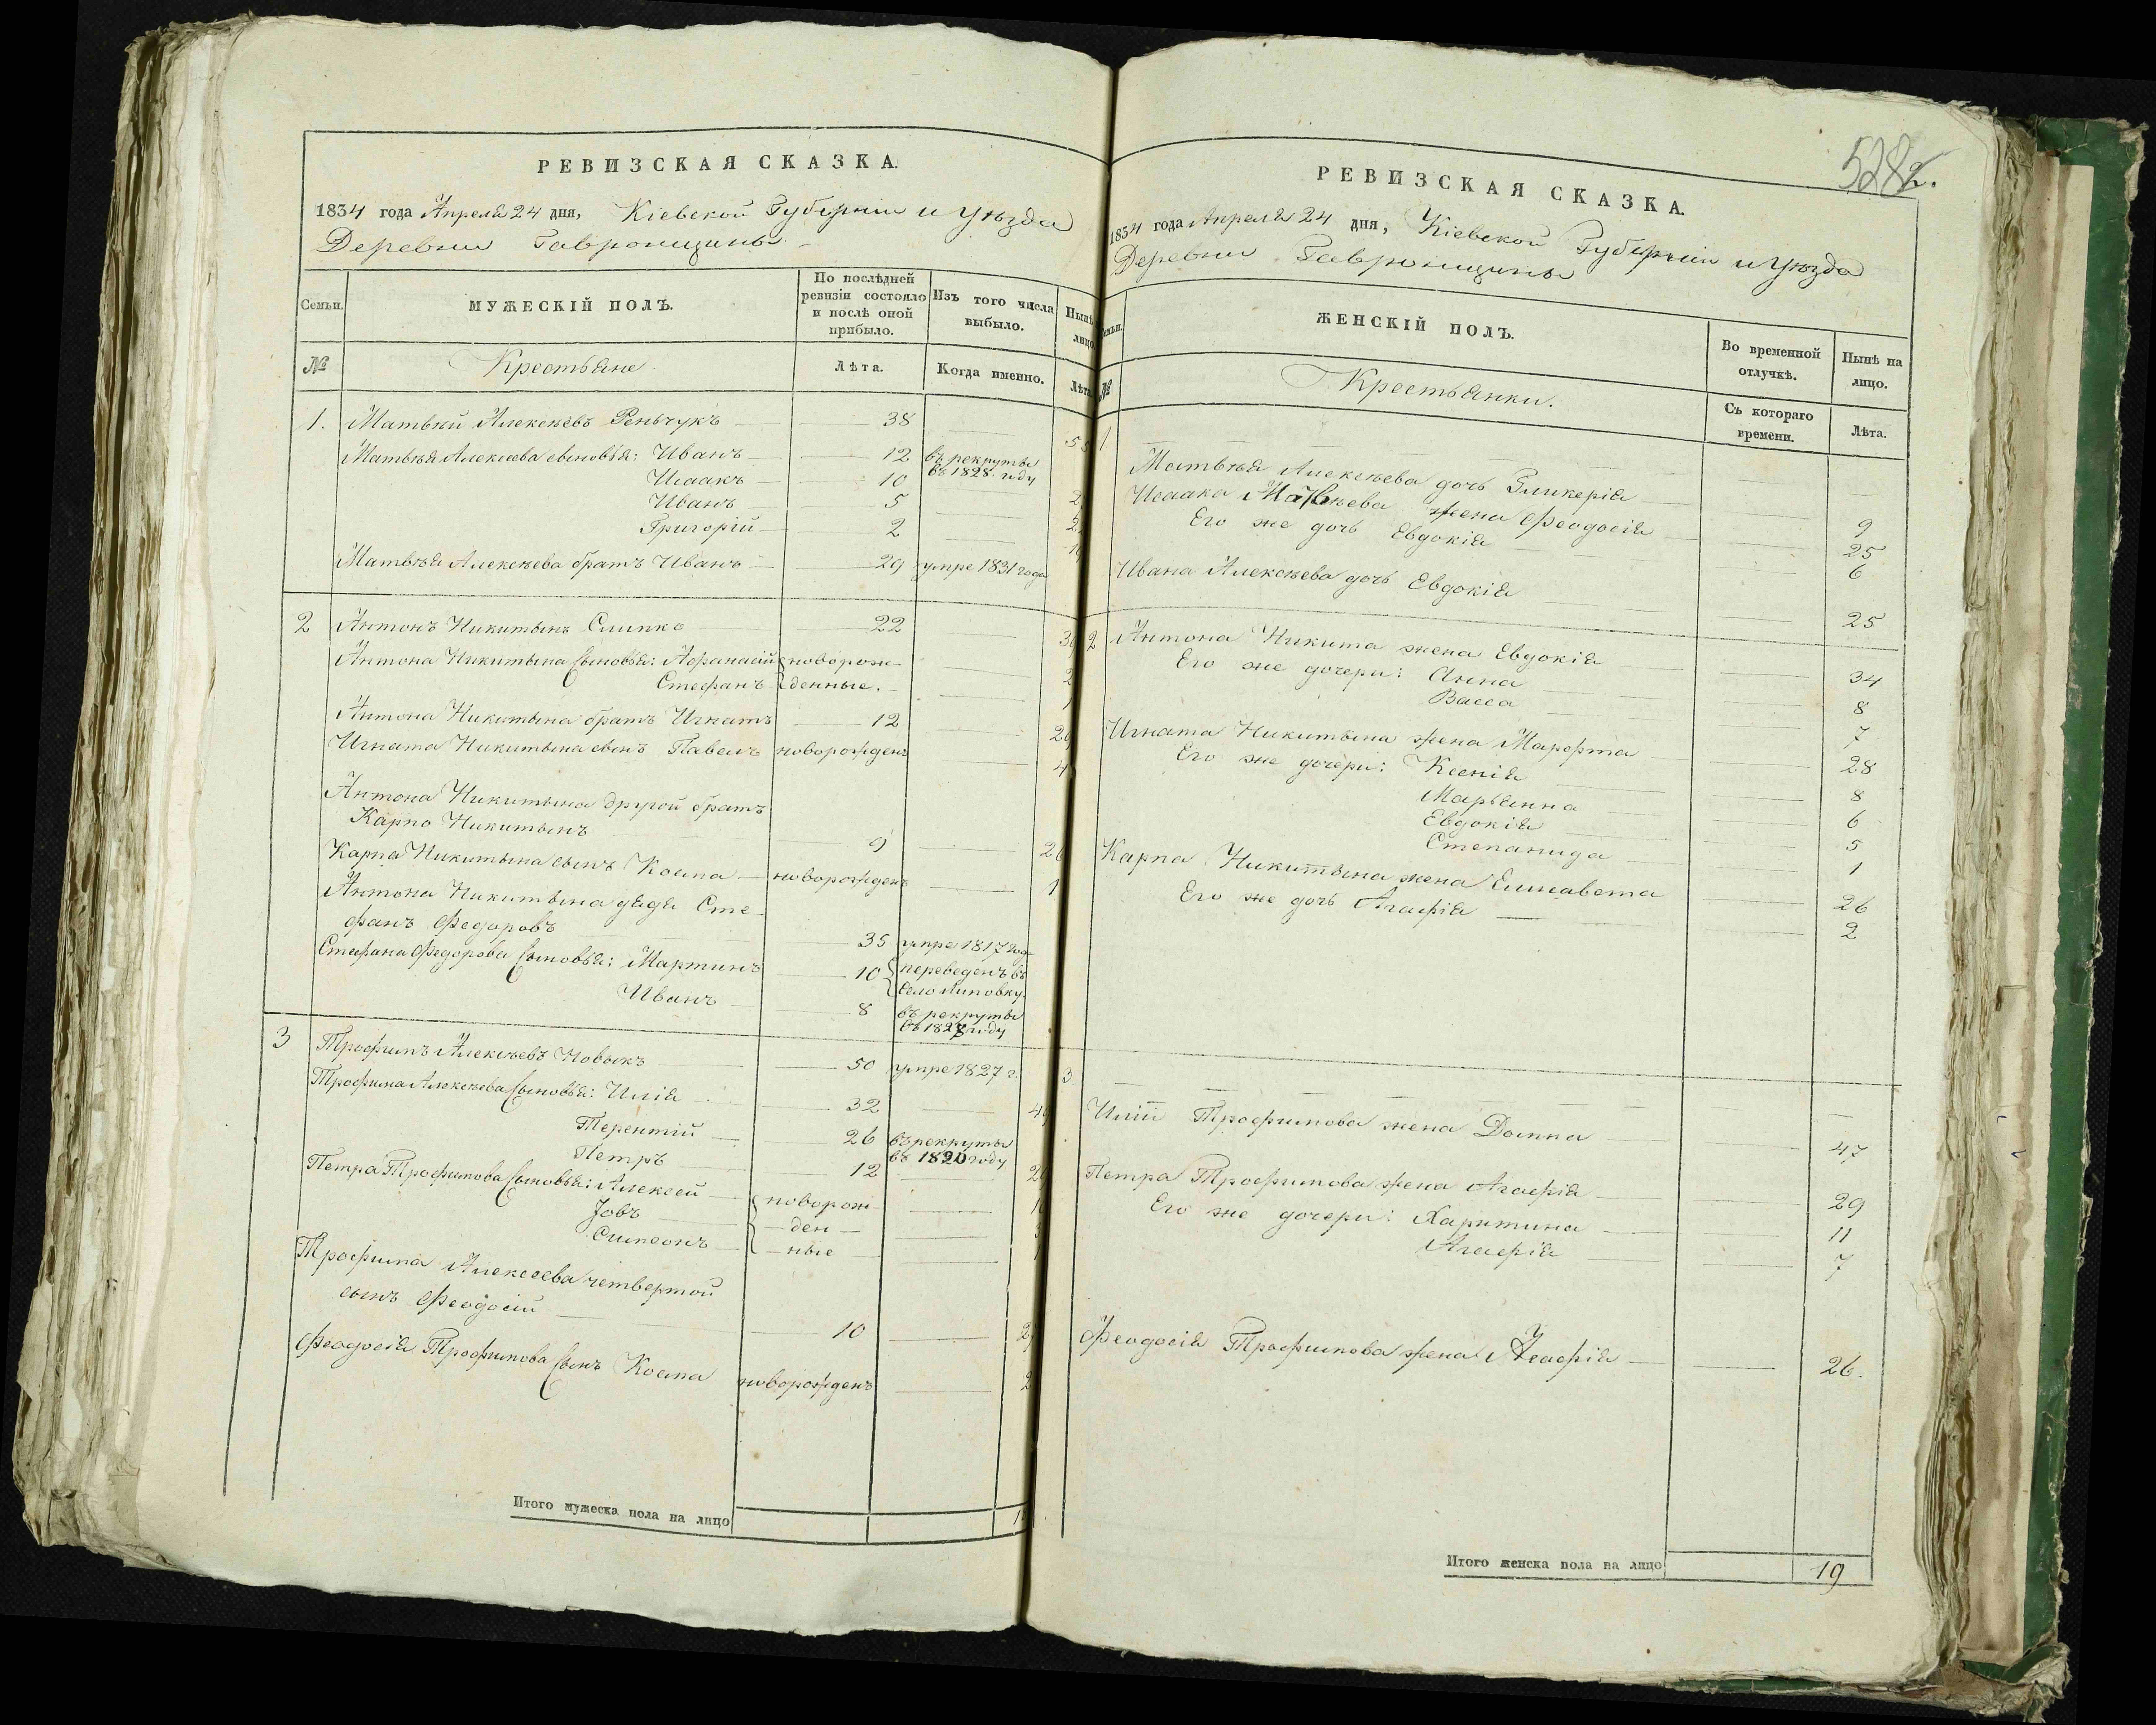 РЕВИЗСКАЯ СКАЗКА.
1834 года Апреля 24 дня, Кіевской Губерніи и Уѣзда
Деревни Гавронщины
Семьи.
МУЖЕСКІЙ ПОЛЪ.
По послѣдней ревизіи состояло и послѣ оной прибыло.
Изъ того числа выбыло.
Нынѣ лицо
№
Крестьяне.
Лѣта.
Когда именно.
Лѣта
1. Матвѣй Алексѣевъ Реньчукъ 38 55
Матвѣя Алексеева сыновья: Иванъ 12 въ рекруты въ 1828 году
Исаакъ 10
Иванъ 5
Григорій 2
Матвѣя Алексѣева братъ Иванъ 29 умре 1831 года
2 Антонъ Никитынъ Слипко 22
Антона Никитына сыновья: Афанасій новорож-
Стефанъ денные.
Антона Никитына братъ Игнатъ 12
Игната Никитына сынъ Павелъ новорожденъ 4
Антона Никитына другой братъ
Карпо Никитынъ 9 26
Карпа Никитына сынъ Косма новорожденъ 1
Антона Никитына дядя Сте-
фанъ Федоровъ 35 умре 1817 года
Стефана Федорова сыновья: Мартинъ 10 переведенъ въ село Липовку
Иванъ 8 въ рекруты въ 1827 году
3 Трофимъ Алексѣевъ Новыкъ 50 умре 1827 г.
Трофима Алексѣева сыновья: Илія 32 49
Терентій 26 въ рекруты въ 1820 году
Петръ 12
Петра Трофимова сыновья: Алексей новорож-
Іовъ ден
Симеонъ ные
Трофима Алексеева четвертой
сынъ Феодосій 10
Феодосія Трофимова сынъ Косма новорожденъ
Итого мужеска пола на лицо
528
2.
РЕВИЗСКАЯ СКАЗКА.
1834 года Апреля 24 дня, Кіевской Губерніи и Уѣзда
Деревни Гавронщины
Семьи.
ЖЕНСКІЙ ПОЛЪ.
Во временной отлучкѣ.
Нынѣ на лицо.
№
Крестьянки.
Съ котораго времени.
Лѣта.
1
Матвѣя Алексѣева дочь Гликерія 9
Исаака Матвѣева жена Феодосія 25
Его же дочь Евдокія 6
Ивана Алексѣева дочь Евдокія 25
2 Антона Никита жена Евдокія 34
Его же дочери: Анна 8
Васса 7
Игната Никитына жена Марфта 28
Его же дочери: Ксенія 8
Марьянна 6
Евдокія 5
Степанида 1
Карпа Никитына жена Елисавета 26
Его же дочь Агафія 2
3
Иліи Трофимова жена Домна 47
Петра Трофимова жена Агафія 29
Его же дочери: Харитина 11
Агафія 7
Феодосія Трофимова жена Агафія 26.
Итого женска пола на лицо 19